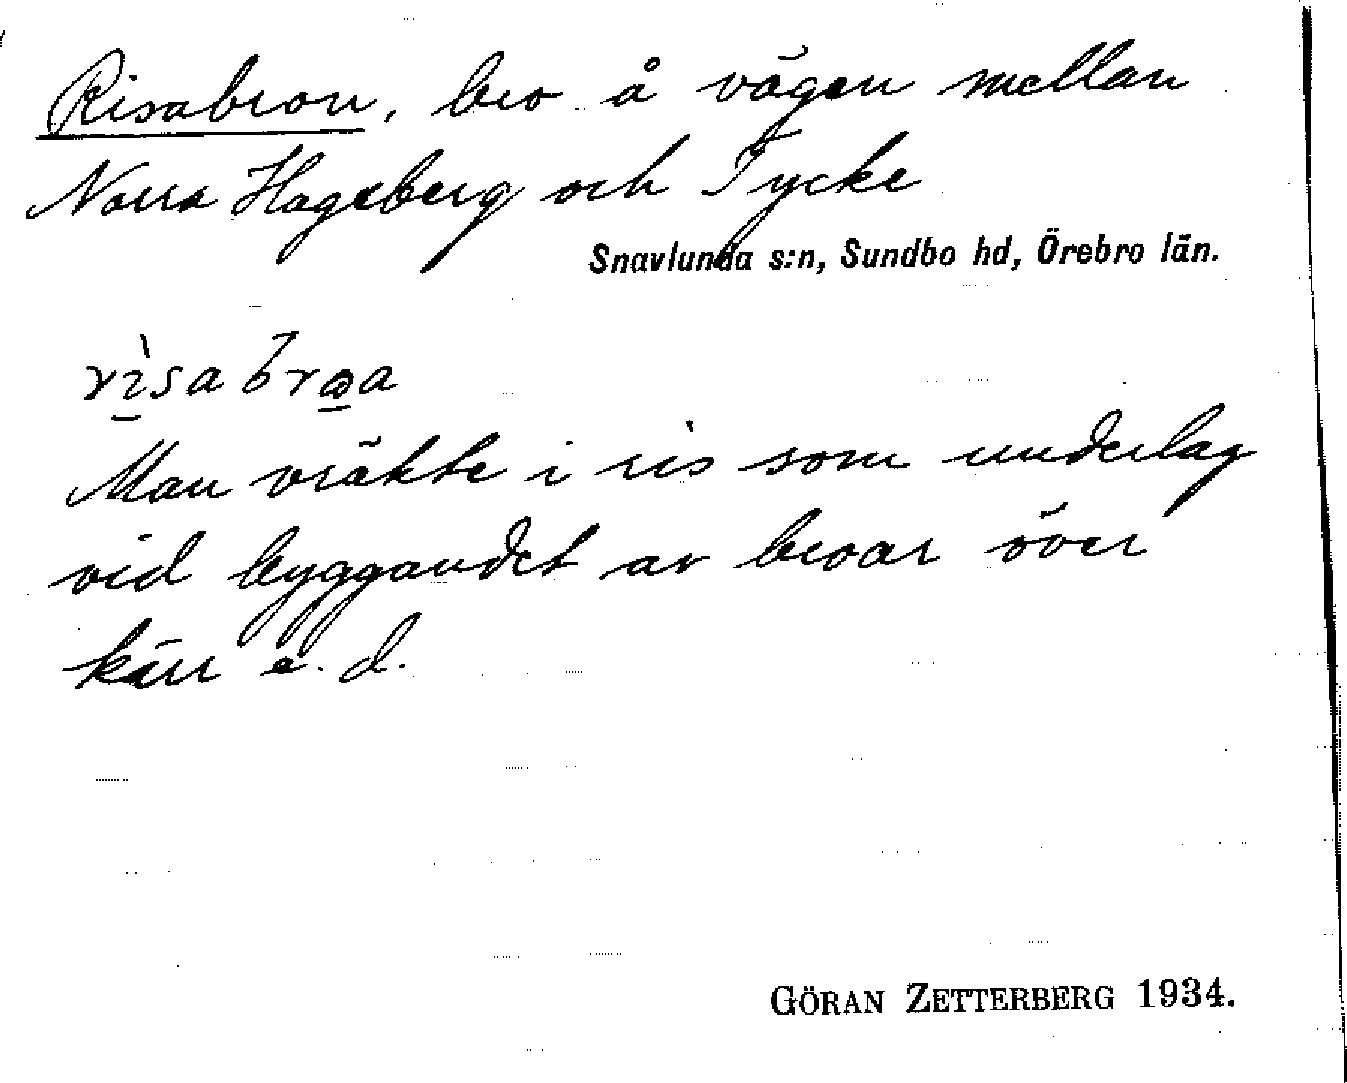 Risabron, bro å vägen mellan
Norra Hageberg och Tycke
Snavlunda s:n, Sundbo hd, Örebro län.
Man vräkte i ris som underlag
vid byggandet av broar över
kärr e. d.
GÖRAN ZETTERBERG 1934.